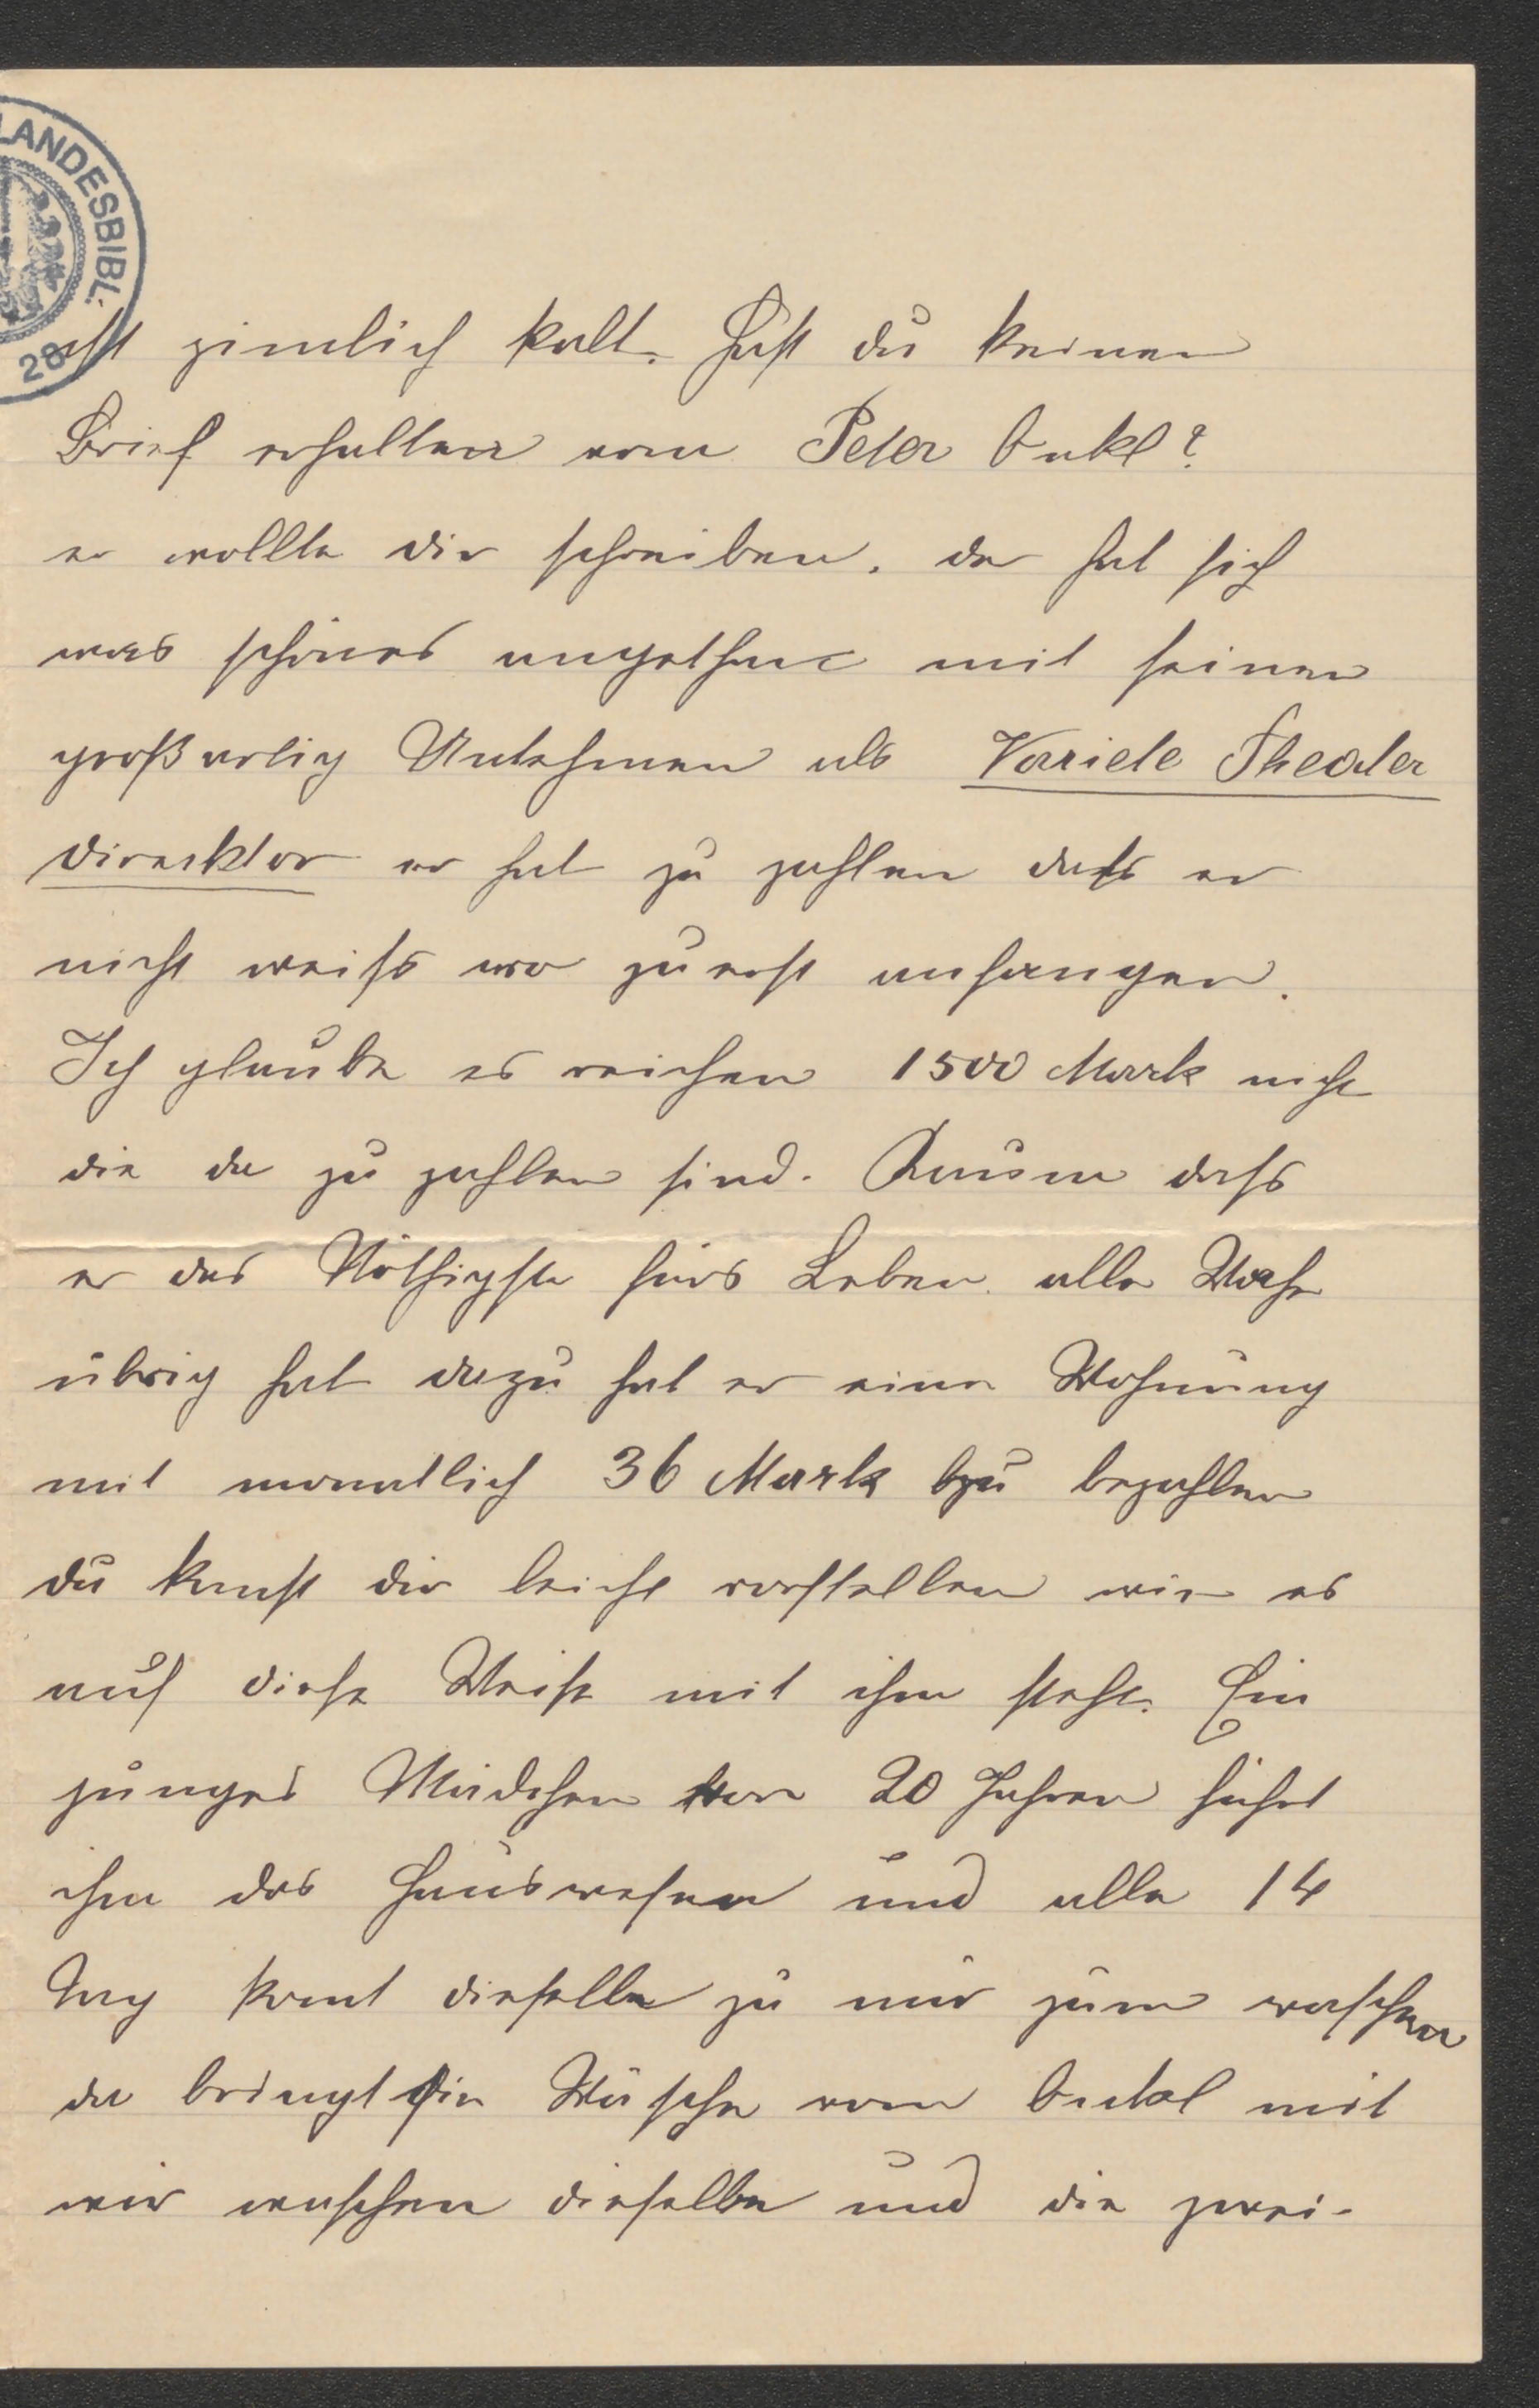 LANDESBIBL.
28
ist zimlich kalt. Hast du keinen
Brief erhalten vom Peter Onkl?
er wollte dir schreiben. der hat sich
was schönes angethan mit seinen
großartig Untehmen als Variete Theater
direcktor er hat zu zahlen dass er
nicht weiss wo zuerst anfangen.
Ich glaube es reichen 1500 Mark nicht
die da zu zahlen sind. Kaum dass
er das Nöthigste fürs Leben alle Woche
übrig hat dazu hat er eine Wohnung
mit monatlich 36 Mark zu bezahlen
du kanst dir leicht vorstellen wie es
auf diese Weise mit ihm steht. Ein
junges Mädchen von 20 Jahren führt
ihm das Hauswesen und alle 14
Tag komt dieselbe zu mir zum waschen
da bringt sie Wäsche vom Onkel mit
wir waschen dieselbe und die zwei-